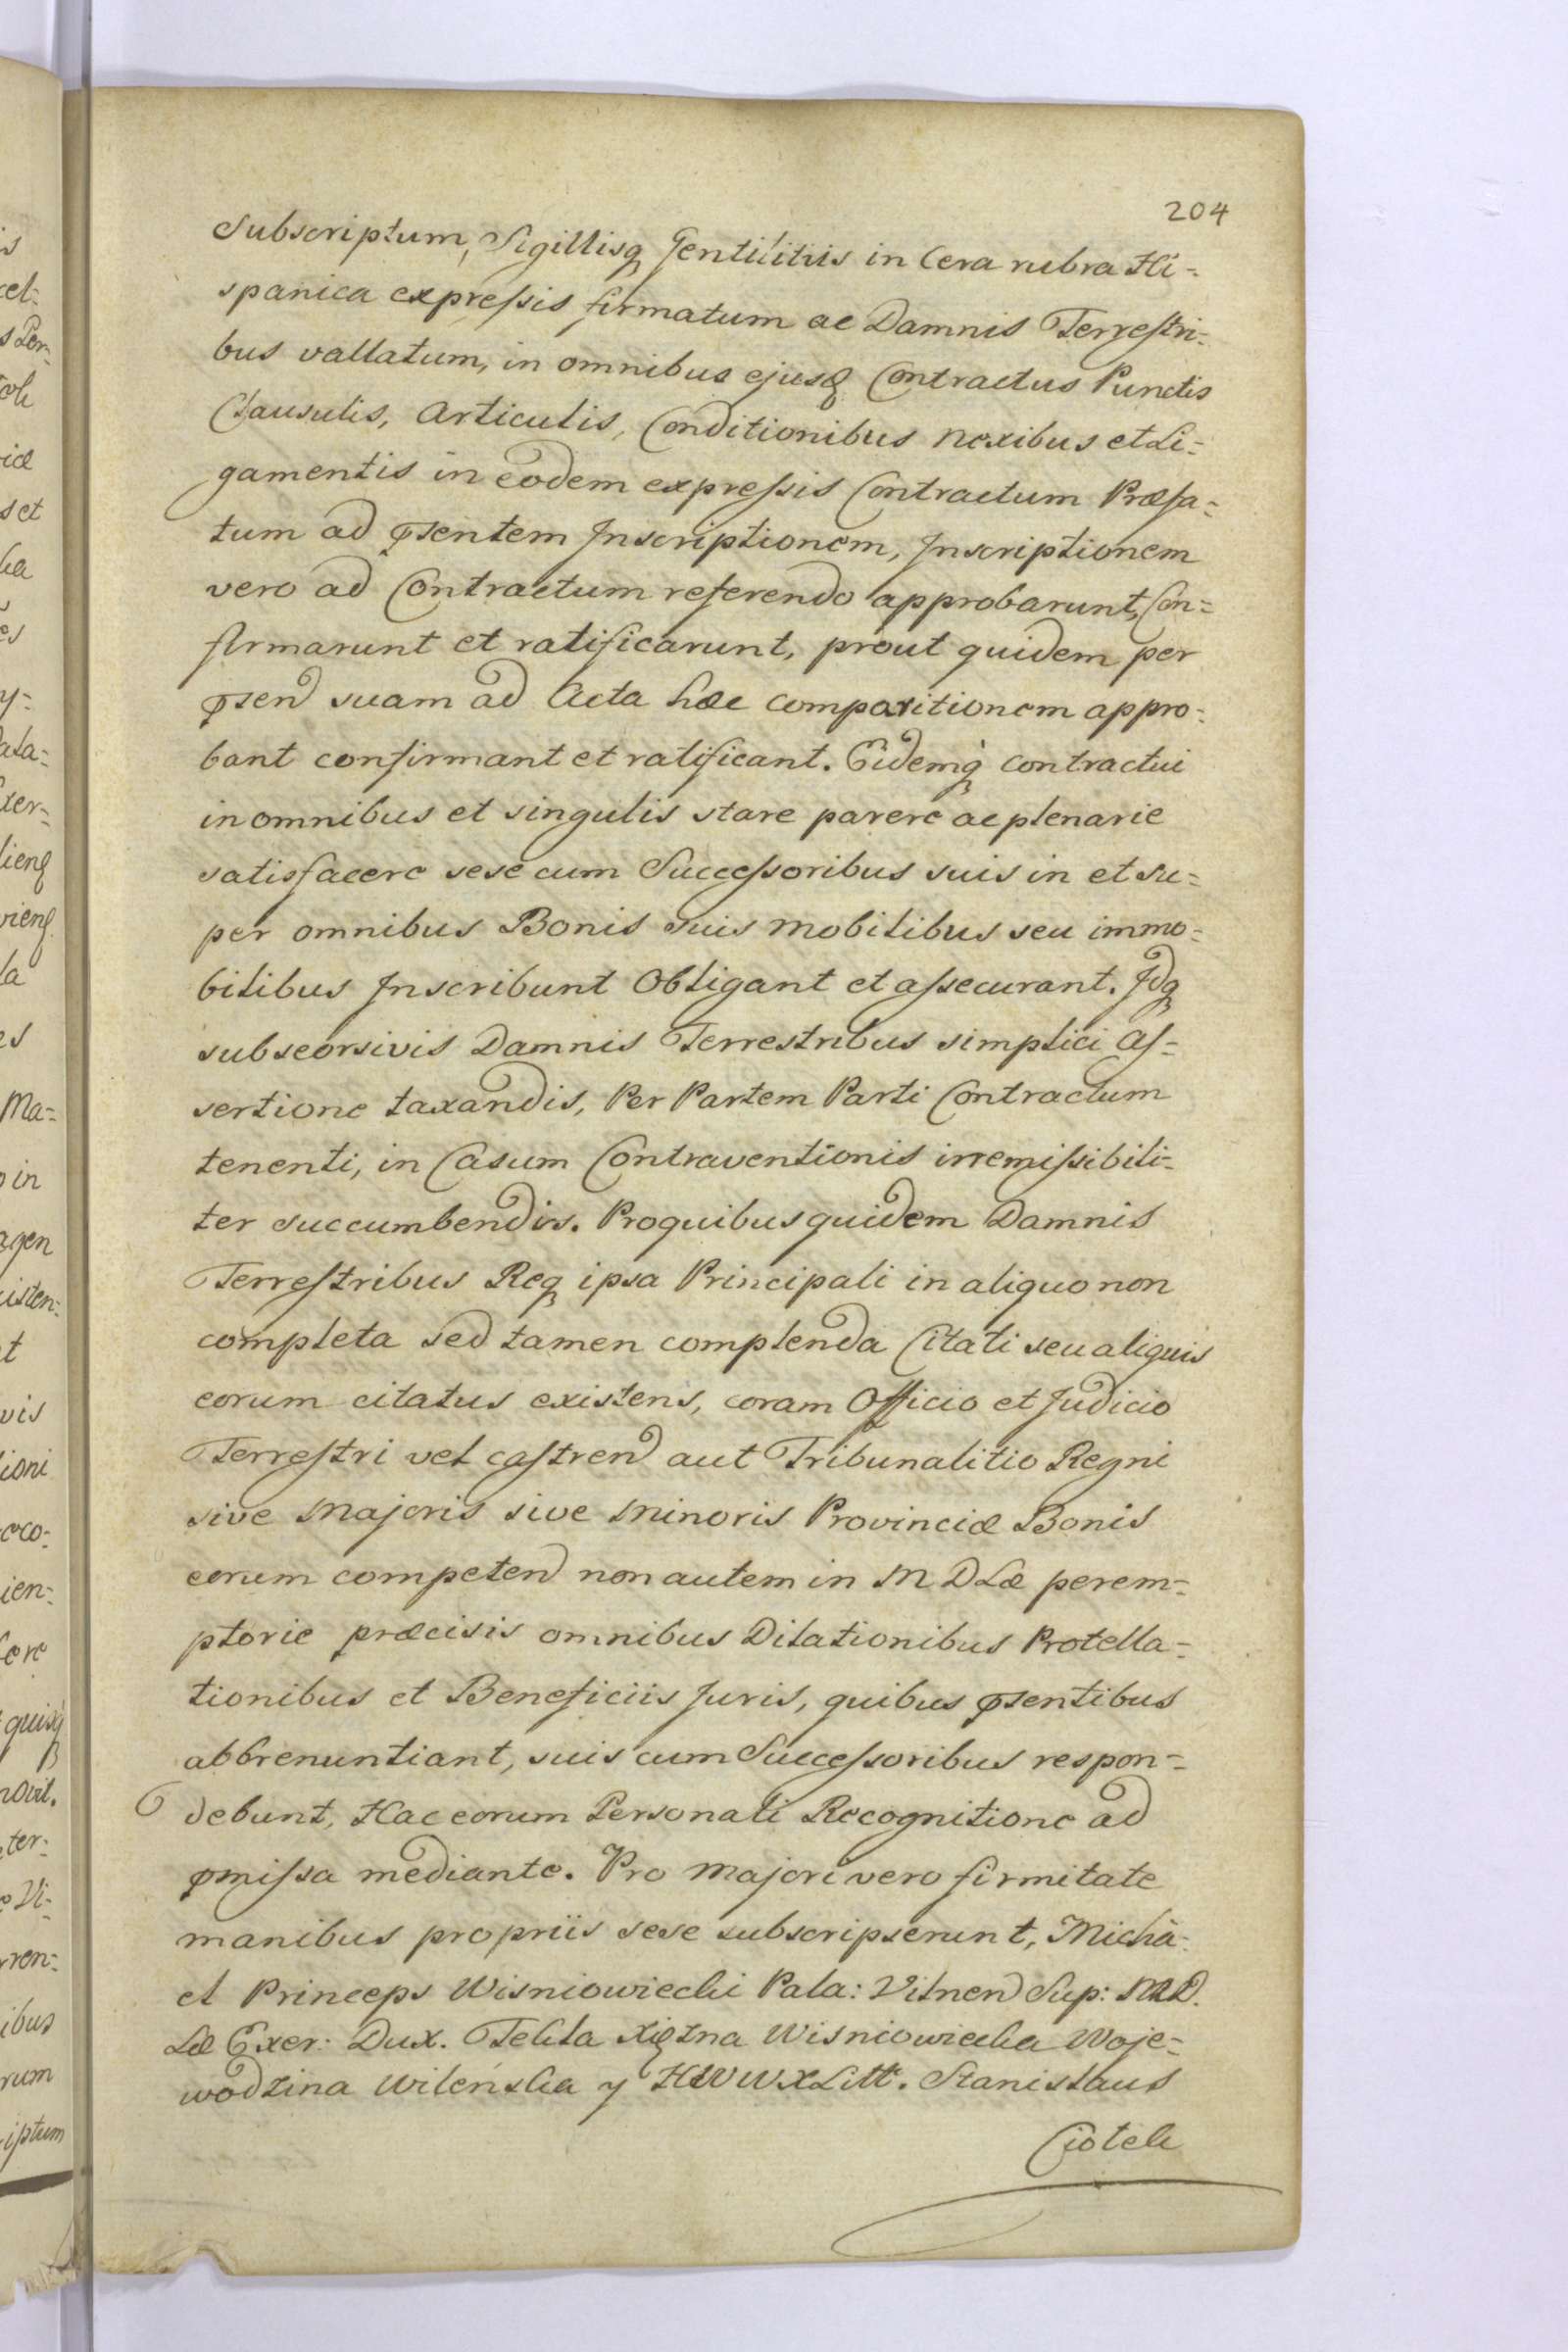 204
Subscriptum, Sigillisq Gentilitiis in Cera rubra Hi=
spanica expressis firmatum ac Damnis Terrestri=
bus vallatum, in omnibus ejusq Contractus Punctis
Clausulis, Articulis, Conditionibus nexibus et Li=
gamentis in eodem expressis Contractum Præfa=
tum ad pſentem Inscriptionem, Inscriptionem
vero ad Contractum referendo approbarunt, Con=
firmarunt et ratificarunt, prout quidem per
pſen suam ad Acta hæc comparitionem appro=
bant confirmant et ratificant. Eidemq contractui
in omnibus et singulis stare parere ac plenarie
satisfacere sese cum Successoribus suis in et su=
per omnibus Bonis suis mobilibus seu immo=
bilibus Inscribunt Obligant et assecurant. Idq
sub seorsivis Damnis Terrestribus simplici As=
sertione taxandis, Per Partem Parti Contractum
tenenti, in Casum Contraventionis irremissibili=
ter succumbendis. Pro quibus quidem Damnis
Terrestribus Req ipsa Principali in aliquo non
completa sed tamen complenda Citati seu aliquis
eorum citatus existens, coram Officio et Judicio
Terrestri vel castren aut Tribunalitio Regni
sive Majoris sive Minoris Provinciæ Bonis
eorum competen non autem in M D Læ perem=
ptorie præcisis omnibus Dilationibus Protella=
tionibus et Beneficiis Juris, quibus pſentibus
abbrenuntiant, suis cum Successoribus respon=
debunt, Hac eorum Personali Recognitione ad
pmissa mediante. Pro majori vero firmitate
manibus propriis sese subscripserunt, Micha=
el Princeps Wisniowiecki Pala: Vilnen Sup: M D.
Læ Exer: Dux. Tekla Xiężna Wisniowiecka Woje=
wodzina wileńska y H W W X Litt. Stanislaus
Ciołek